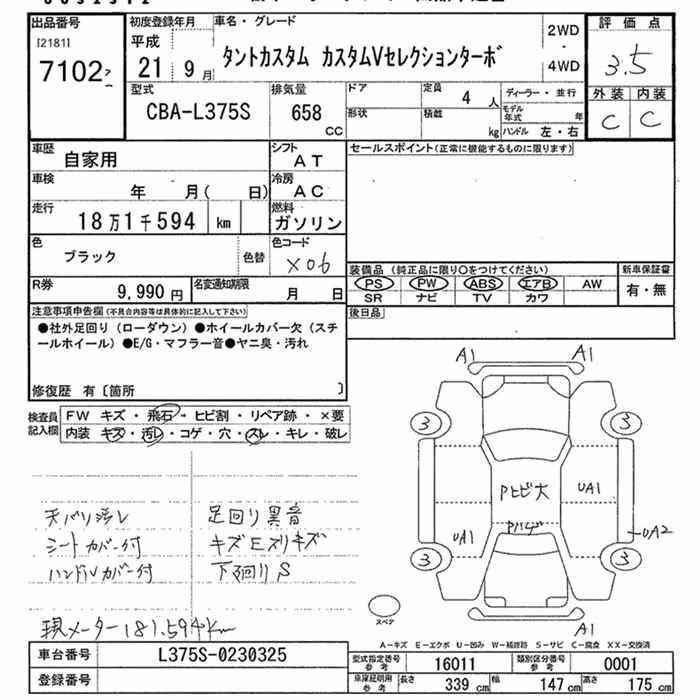 出品番号
[2181]
7102
初度登録年月
平成
21 9月
車名・グレード
タントカスタム カスタムVセレクションターボ
2WD
・
4WD
評価点
3.5
外装 内装
C C
型式
CBA-L375S
排気量
658
CC
ドア
形状
定員
4人
積載
kg
ディーラー・並行
モデル年式
年
ハンドル 左・右
車歴
自家用
シフト
AT
車検
年 月( 日)
冷房
AC
走行
18万1千594 km
燃料
ガソリン
色
ブラック
色替
色コード
X06
R券
9,990円
名変通知期限
月 日
セールスポイント(正常に機能するものに限ります)
装備品 (純正品に限り○をつけてください)
PS PW ABS エアB AW
SR ナビ TV カワ
新車保証書
有・無
後日品
注意事項申告欄(不具合内容等は具体的に記入して下さい)
●社外足回り(ローダウン)●ホイールカバー欠(スチ
ールホイール)●E/G・マフラー音●ヤニ臭・汚れ
修復歴 有〔箇所 〕
検査員
記入欄
FW キズ・飛石・ヒビ割・リペア跡・×要
内装 キズ・汚レ・コゲ・穴・スレ・キレ・破レ
天バリ汚レ
シートカバー付
ハンドルカバー付
足回り異音
キズEスリキズ
下廻りS
現メーター181.594km
A1 A1
3 3
Pヒビ大
UA1
Pハゲ
UA1
UA2
3 3
A1
スペア
A-キズ E-エクボ U-凹み W-補修跡 S-サビ C-腐食 XX-交換済
車台番号
L375S-0230325
登録番号
型式指定番号
参考
16011
類別区分番号
参考
0001
車庫証明用
参考
長さ 339cm 幅 147cm 高さ 175cm